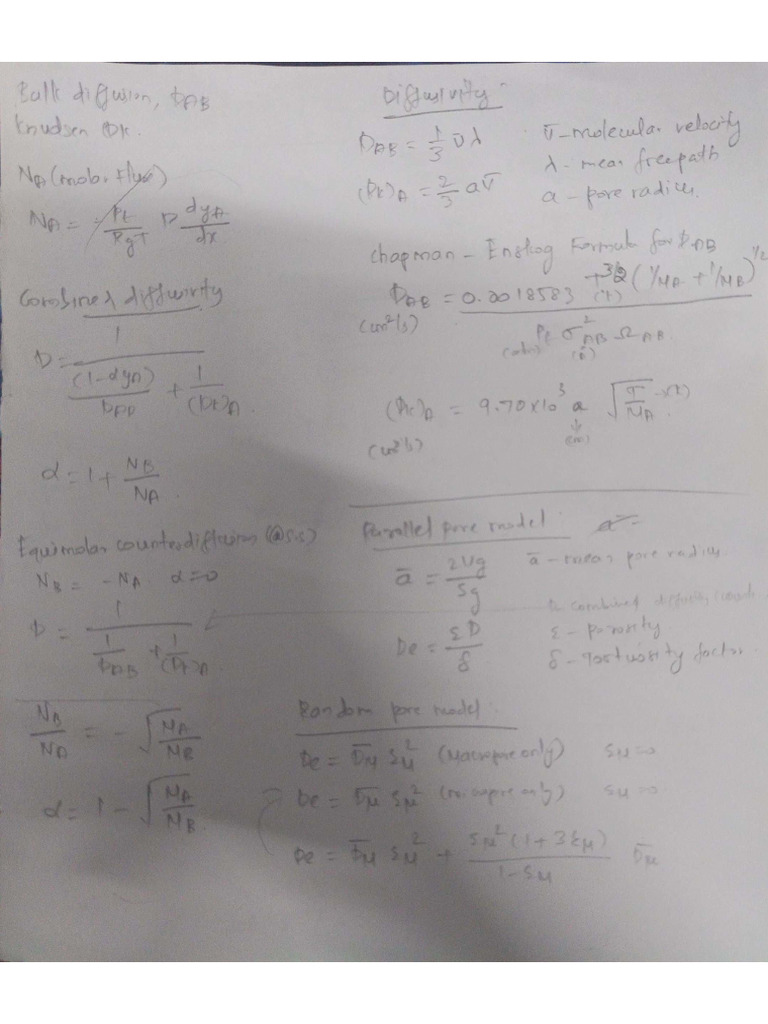 Bulk diffusion, DAB
Knudsen DK.
NA (molar flux)
NA = - Pt/RgT D dyA/dx
Combined diffusivity
D = 1 / ((1-αyA)/DAB + 1/(DK)A).
α = 1 + NB/NA.
Equimolar counterdiffusion (@S.S)
NB = -NA. α=0
D = 1 / (1/DAB + 1/(DK)A)
NB/NA = - √(MA/MB)
α = 1 - √(MA/MB).
Diffusivity
DAB = 1/3 v̄ λ
v̄ - molecular velocity
λ - mean free path
(DK)A = 2/3 a v̄
a - pore radius.
Chapman - Enskog Formula for DAB
DAB = 0.0018583 T^3/2 (1/MA + 1/MB)^1/2 / Pt σ²AB ΩAB
(cm²/s) (K) (atm) (Å)
(DK)A = 9.70×10³ a √(T/MA) →(K)
(cm²/s) (cm)
Parallel pore model
ā = 2Vg/Sg
ā - mean pore radius
De = εD/δ
ε - Porosity
δ - Tortuosity factor.
Random pore model.
De = D̄M εM² (Macropore only) εμ=0
De = D̄μ εμ² (micropore only) εM=0
De = D̄M εM² + εμ²(1+3εM)/(1-εM) D̄μ